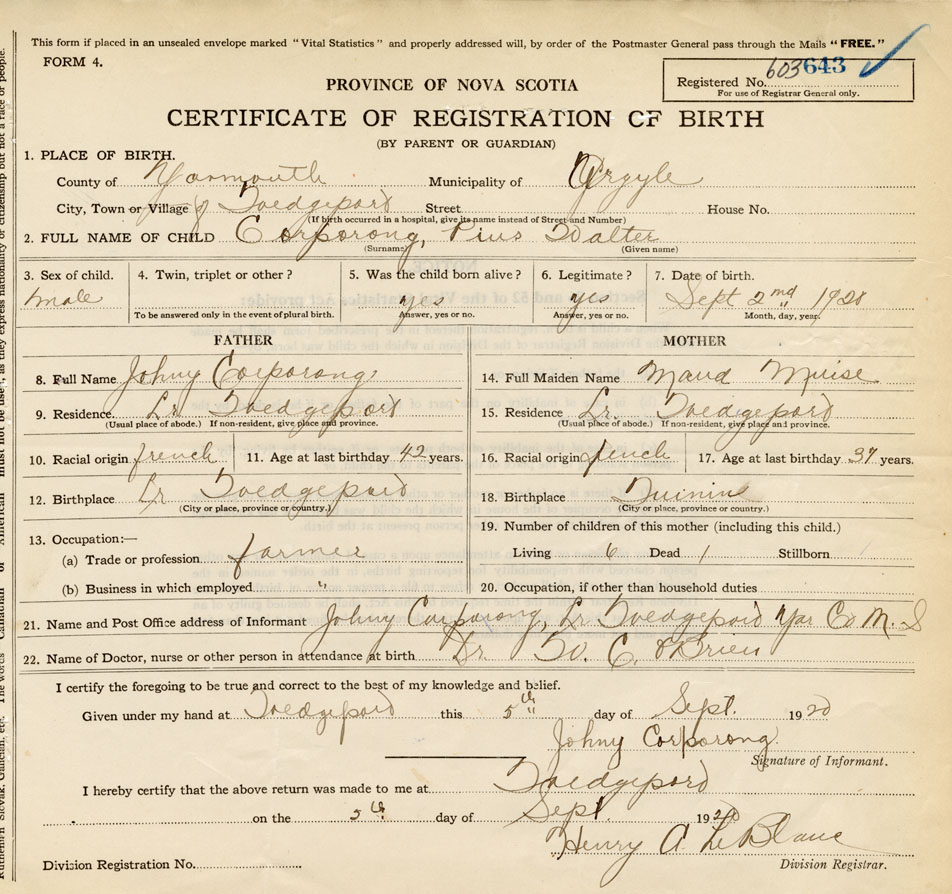 This form if placed in an unsealed envelope marked "Vital Statistics" and properly addressed will, by order of the Postmaster General pass through the Mails "FREE."
FORM 4.
603 643
Registered No.
For use of Registrar General only.
PROVINCE OF NOVA SCOTIA
CERTIFICATE OF REGISTRATION OF BIRTH
(BY PARENT OR GUARDIAN)
1. PLACE OF BIRTH.
County of Yarmouth Municipality of Argyle
City, Town or Village of Wedgeport Street House No.
(If birth occurred in a hospital, give its name instead of Street and Number)
2. FULL NAME OF CHILD Corporong, Pius Walter
(Surname) (Given name)
3. Sex of child. 4. Twin, triplet or other? 5. Was the child born alive? 6. Legitimate? 7. Date of birth.
male yes yes Sept 2nd 1920
To be answered only in the event of plural birth. Answer, yes or no. Answer, yes or no. Month, day, year.
FATHER MOTHER
8. Full Name Johny Corporong 14. Full Maiden Name Maud Muise
9. Residence. Lr. Wedgeport 15. Residence Lr. Wedgeport
(Usual place of abode.) If non-resident, give place and province. (Usual place of abode.) If non-resident, give place and province.
10. Racial origin french 11. Age at last birthday 42 years. 16. Racial origin french 17. Age at last birthday 37 years.
12. Birthplace Lr Wedgeport 18. Birthplace Quinin
(City or place, province or country.) (City or place, province or country.)
13. Occupation:— 19. Number of children of this mother (including this child.)
(a) Trade or profession farmer Living 6 Dead 1 Stillborn
(b) Business in which employed " 20. Occupation, if other than household duties
21. Name and Post Office address of Informant Johny Corporong, Lr. Wedgeport Yar Co N. S
22. Name of Doctor, nurse or other person in attendance at birth Dr. W. C. O'Brien
I certify the foregoing to be true and correct to the best of my knowledge and belief.
Given under my hand at Wedgeport this 5th day of Sept. 1920
Johny Corporong.
Signature of Informant.
I hereby certify that the above return was made to me at Wedgeport
on the 5th day of Sept. 1920
Henry A LeBlanc
Division Registration No. Division Registrar.